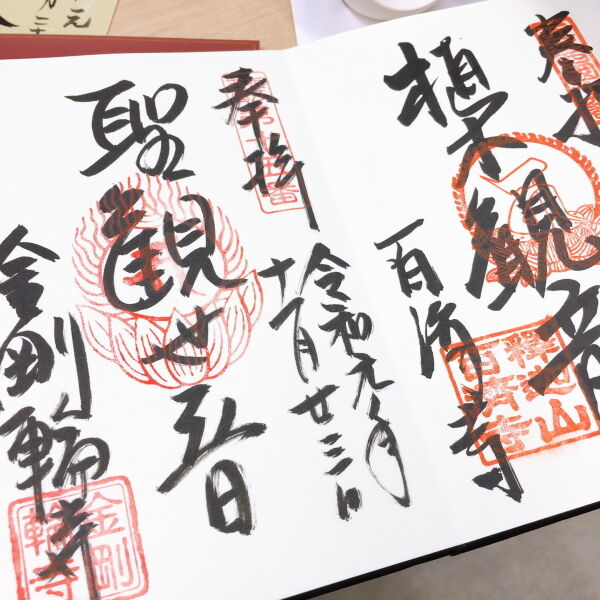 奉拝
植木観音
百済寺
釋迦山
百済寺
奉拝
令和元年
十一月廿三日
聖観世音
金剛輪寺
金剛
輪寺